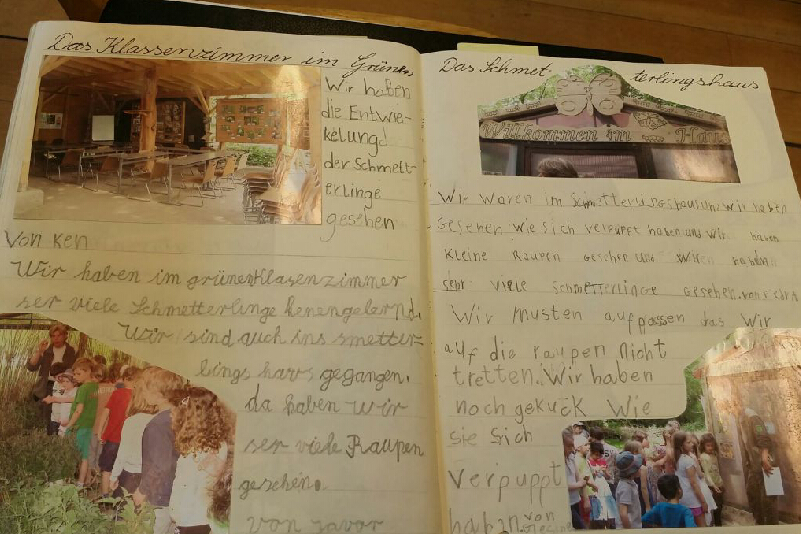 Das Klassenzimmer im Grünen
Wir haben
die Entwie-
kelung
der Schmett-
erlinge
gesehen
Von Ken
Wir haben im grünen Klasenzimmer
ser viele Schmetterlinge kenengelernd.
Wir sind auch ins smetter-
lings haus gegangen.
da haben wir
ser viele Raupen
gesehen.
Von
Das Schmetterlingshaus
Willkommen im Haus
Wir waren im wir haben
gesehen wie sich verpuppt haben und wir haben
kleine Raupen gesehen und wir haben
sehr viele schmetterlinge gesehen.
Wir musten aufpassen das wir
auf die raupen nicht
tretten. Wir haben
noch gekuck wie
sie sich
verpuppt
haben von